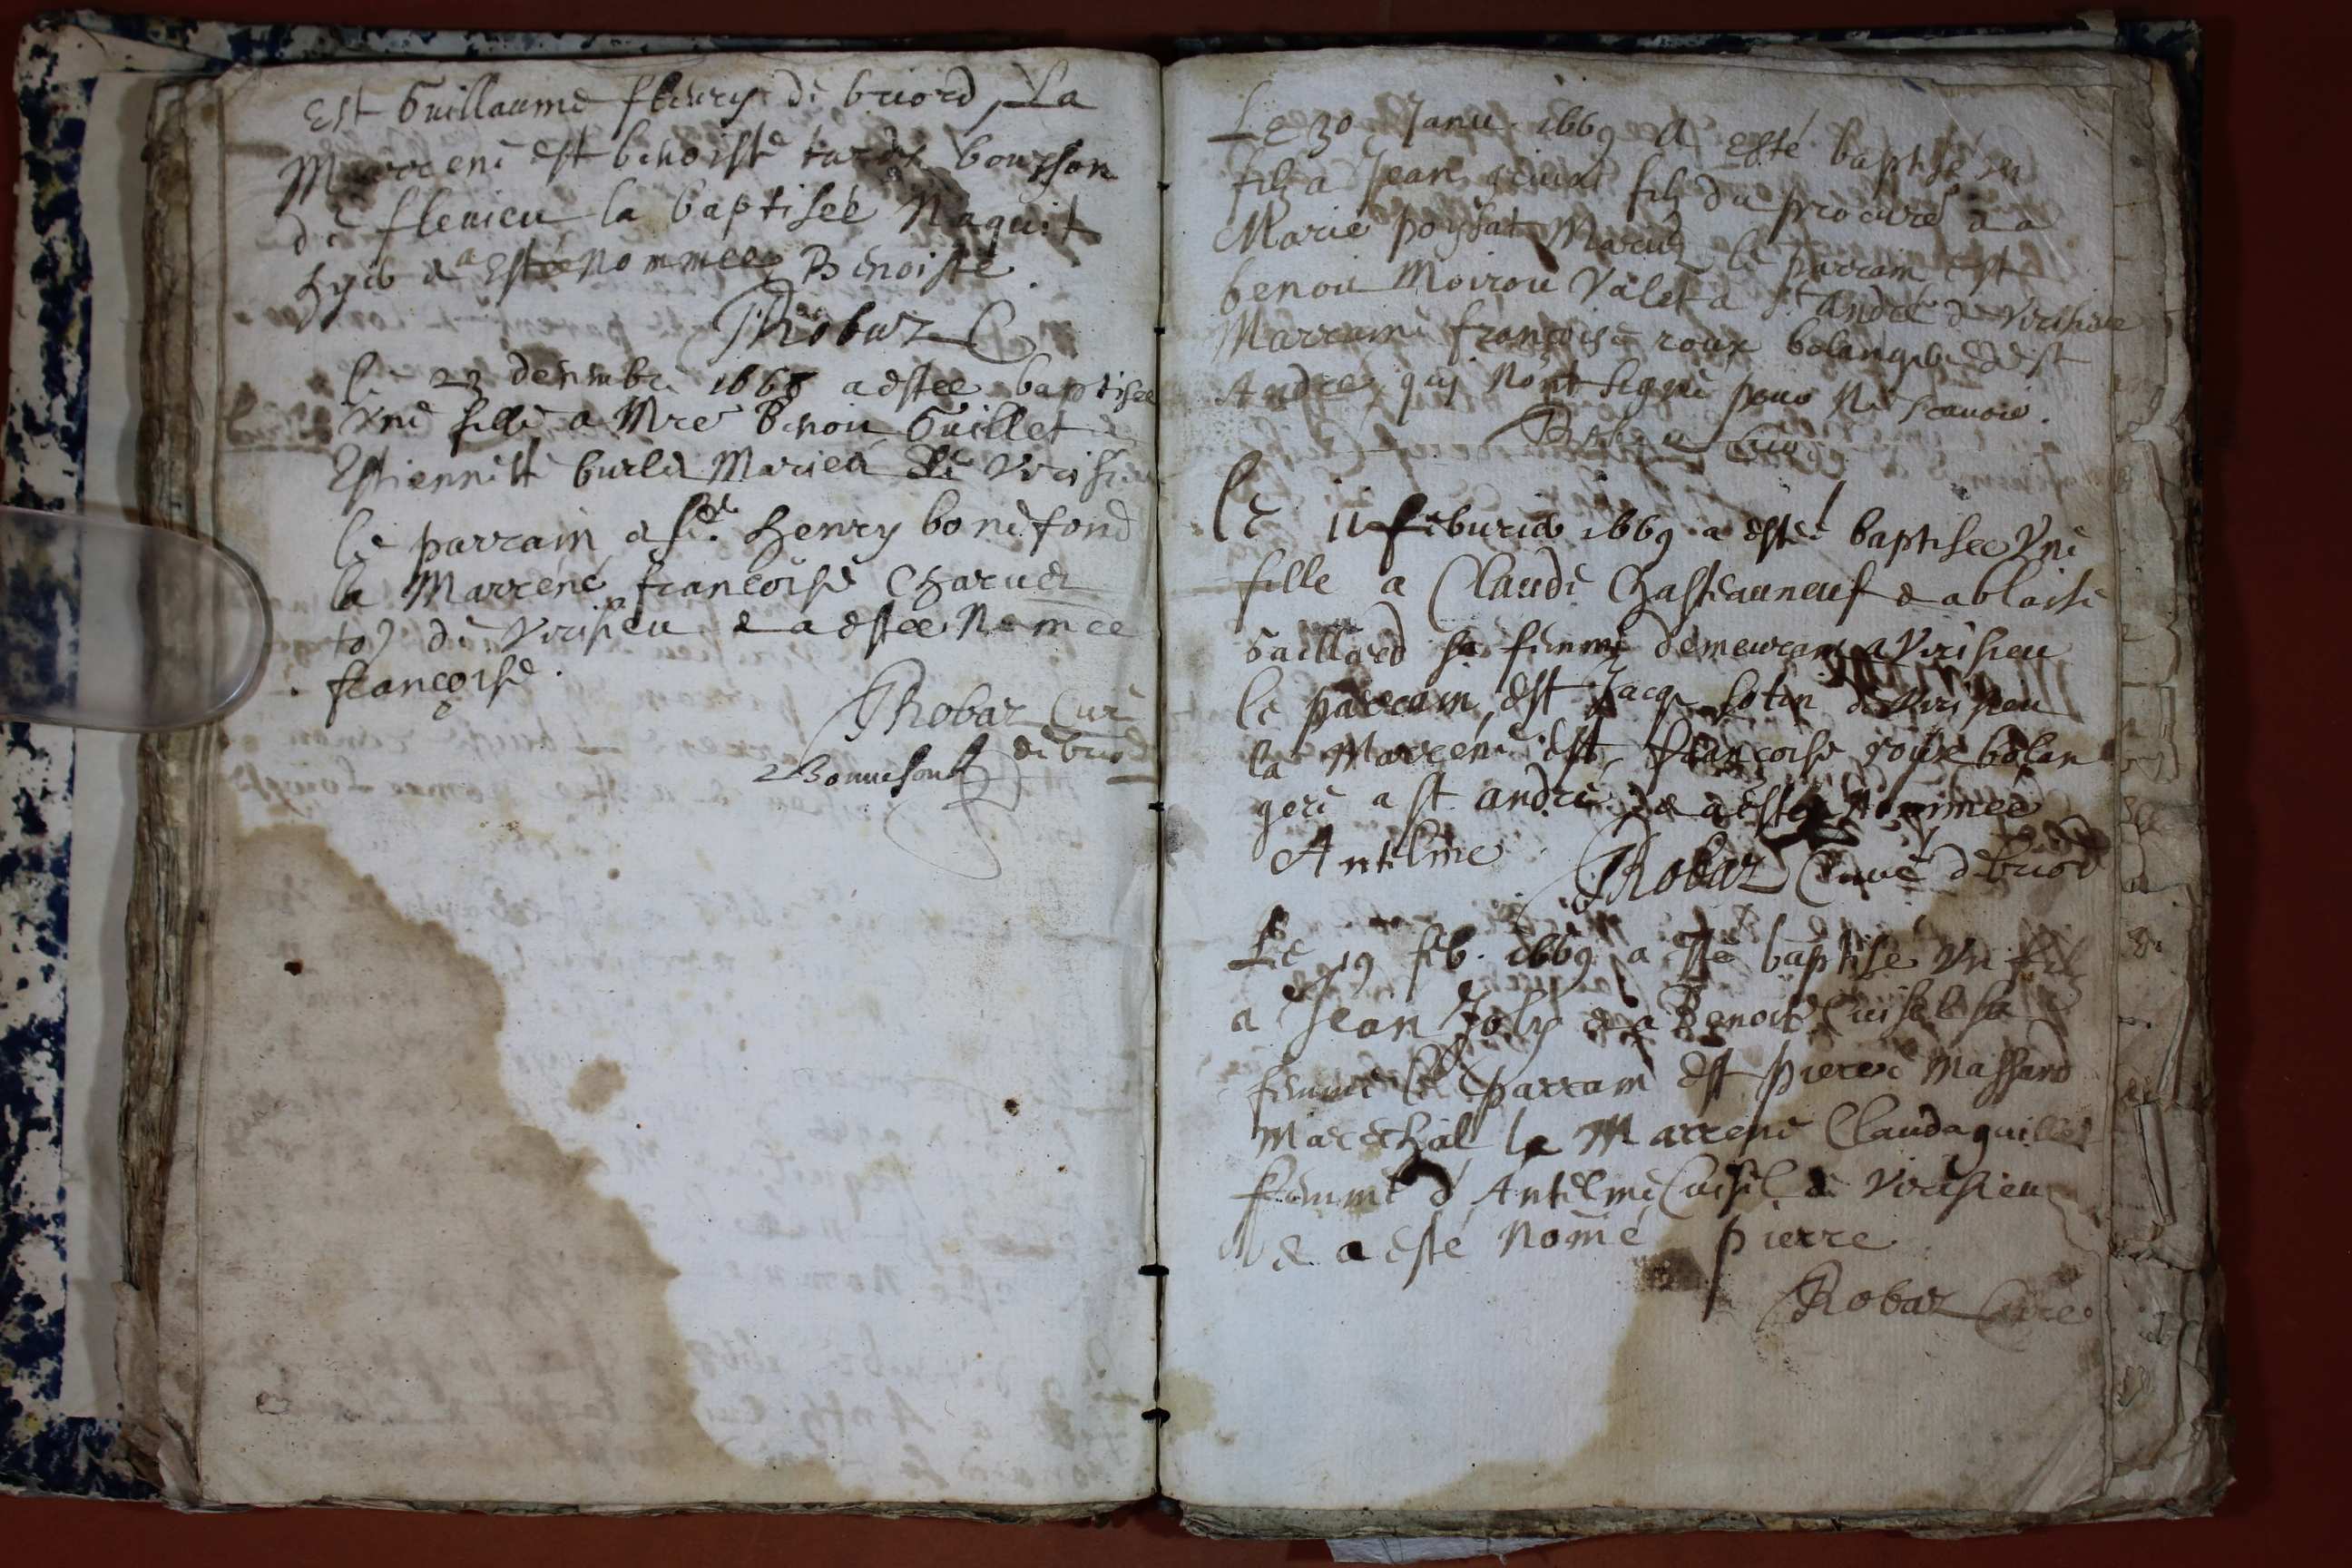 Est Guillaume fleury de briord, La
Marrene est benoiste bourson
de flevieu la baptisée Naquit
hyer & a Esté Nommée Benoiste.
Robaz C
le 23 decembre 1668 a estee baptisee
Une fille a Mre Benoit Guillet &
Estiennette burlet Mariea de Virisieu
le parrain est Sr. henry bonefond
la Marrene francoise Charuet
to) de Virisieu & a estee Nomee
françoise.
Robaz Curé
de briord
Bonnefont
Le 30 Janu. 1669 a esté baptisé un
filz a Jean filz du procure & a
Marie poysat Mariez le parrain est
benoit Moirou Valet a St. André de Virisieu
Marraine françoise roux bolangere dest
André, qui N'ont signé pour Ne scavoir.
Robaz Cur
le 11 feburier 1669 a estée baptisee Une
fille a Claude Chasteauneuf & a blaise
Gaillard sa femme demeurant a Virisieu
le parrain est Jacq. de Virisieu
la Marrene est françoise roux bolan
gere a st. andré & a estée Nommee
Antelme Robaz Curé de briord
Le 19 feb. 1669 a esté baptisé Un filz
a Jean Joly & a Benoite Cuisel sa
femme le parrain est pierre Massard
Mareschal la Marrene Clauda guillet
femme d'Antelme Cuisel de Virisieu
& a esté Nomé pierre
Robaz Curé